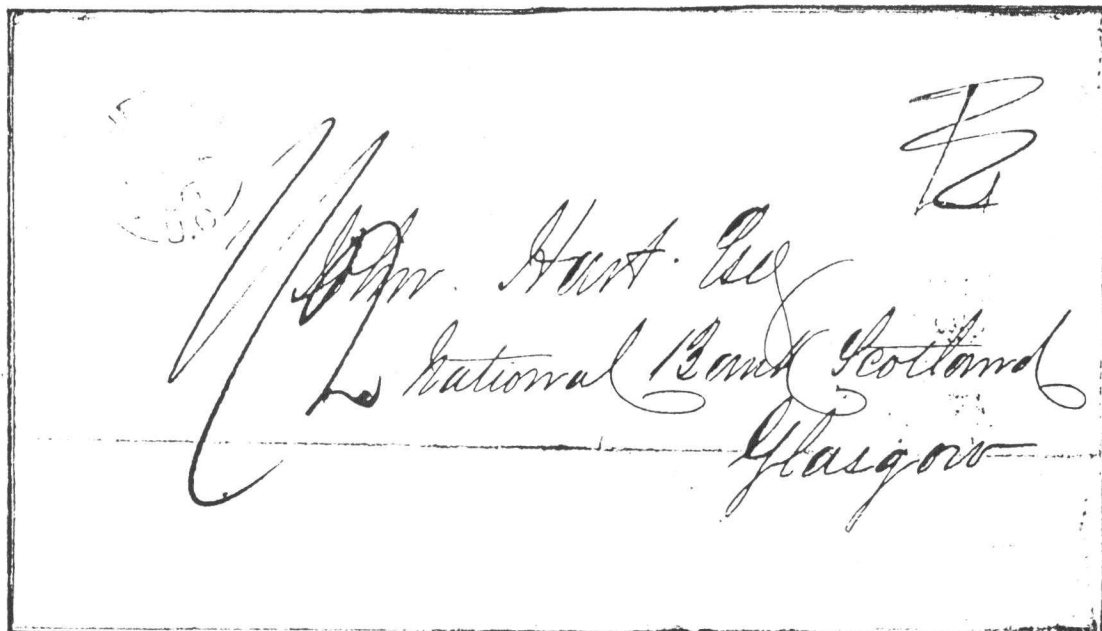 1/2
John Hart. Esq
National Bank Scotland
Glasgow